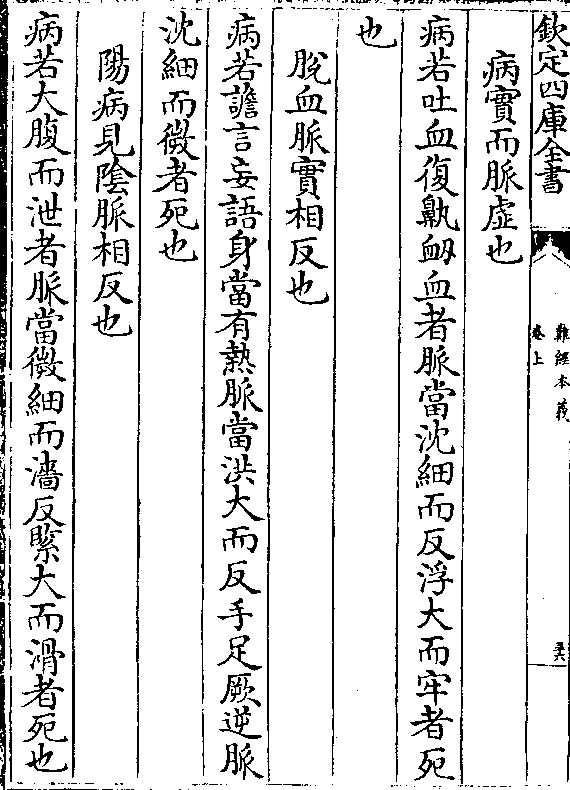 欽定四庫全書
難經本義
卷上
至六
病實而脈虛也
病若吐血復鼽衄血者脈當沈細而反浮大而牢者死
也
脫血脈實相反也
病若譫言妄語身當有熱脈當洪大而反手足厥逆脈
沈細而微者死也
陽病見陰脈相反也
病若大腹而泄者脈當微細而濇反緊大而滑者死也